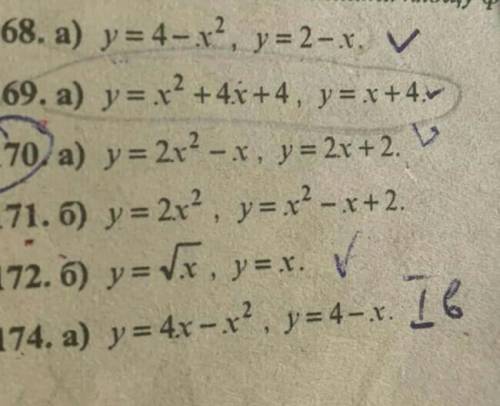 68. а) y = 4 − x², y = 2 − x.
69. а) y = x² + 4x + 4, y = x + 4.
70. а) y = 2x² − x, y = 2x + 2.
171. б) y = 2x², y = x² − x + 2.
172. б) y = √x, y = x.
174. а) y = 4x − x², y = 4 − x. I в